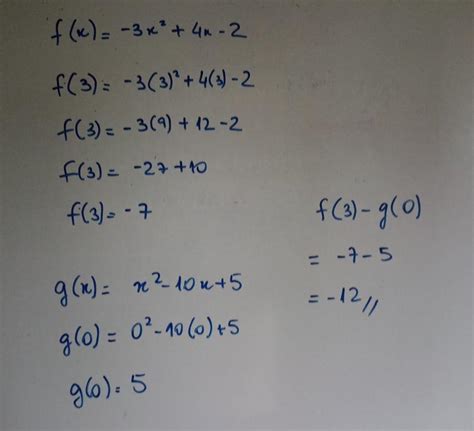 f(x) = -3x² + 4x - 2
f(3) = -3(3)² + 4(3) - 2
f(3) = -3(9) + 12 - 2
f(3) = -27 + 10
f(3) = -7
g(x) = x² - 10x + 5
g(0) = 0² - 10(0) + 5
g(0) = 5
f(3) - g(0)
= -7 - 5
= -12 //